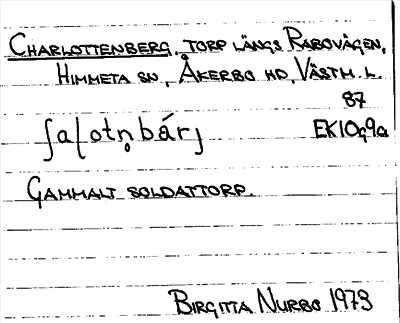 CHARLOTTENBERG, TORP LÄNGS RABOVÄGEN,
HIMMETA SN, ÅKERBO HD, VÄSTM. L.
87
ʃaɭotn̥bárj
EK10g9a
GAMMALT SOLDATTORP.
BIRGITTA NURBO 1973